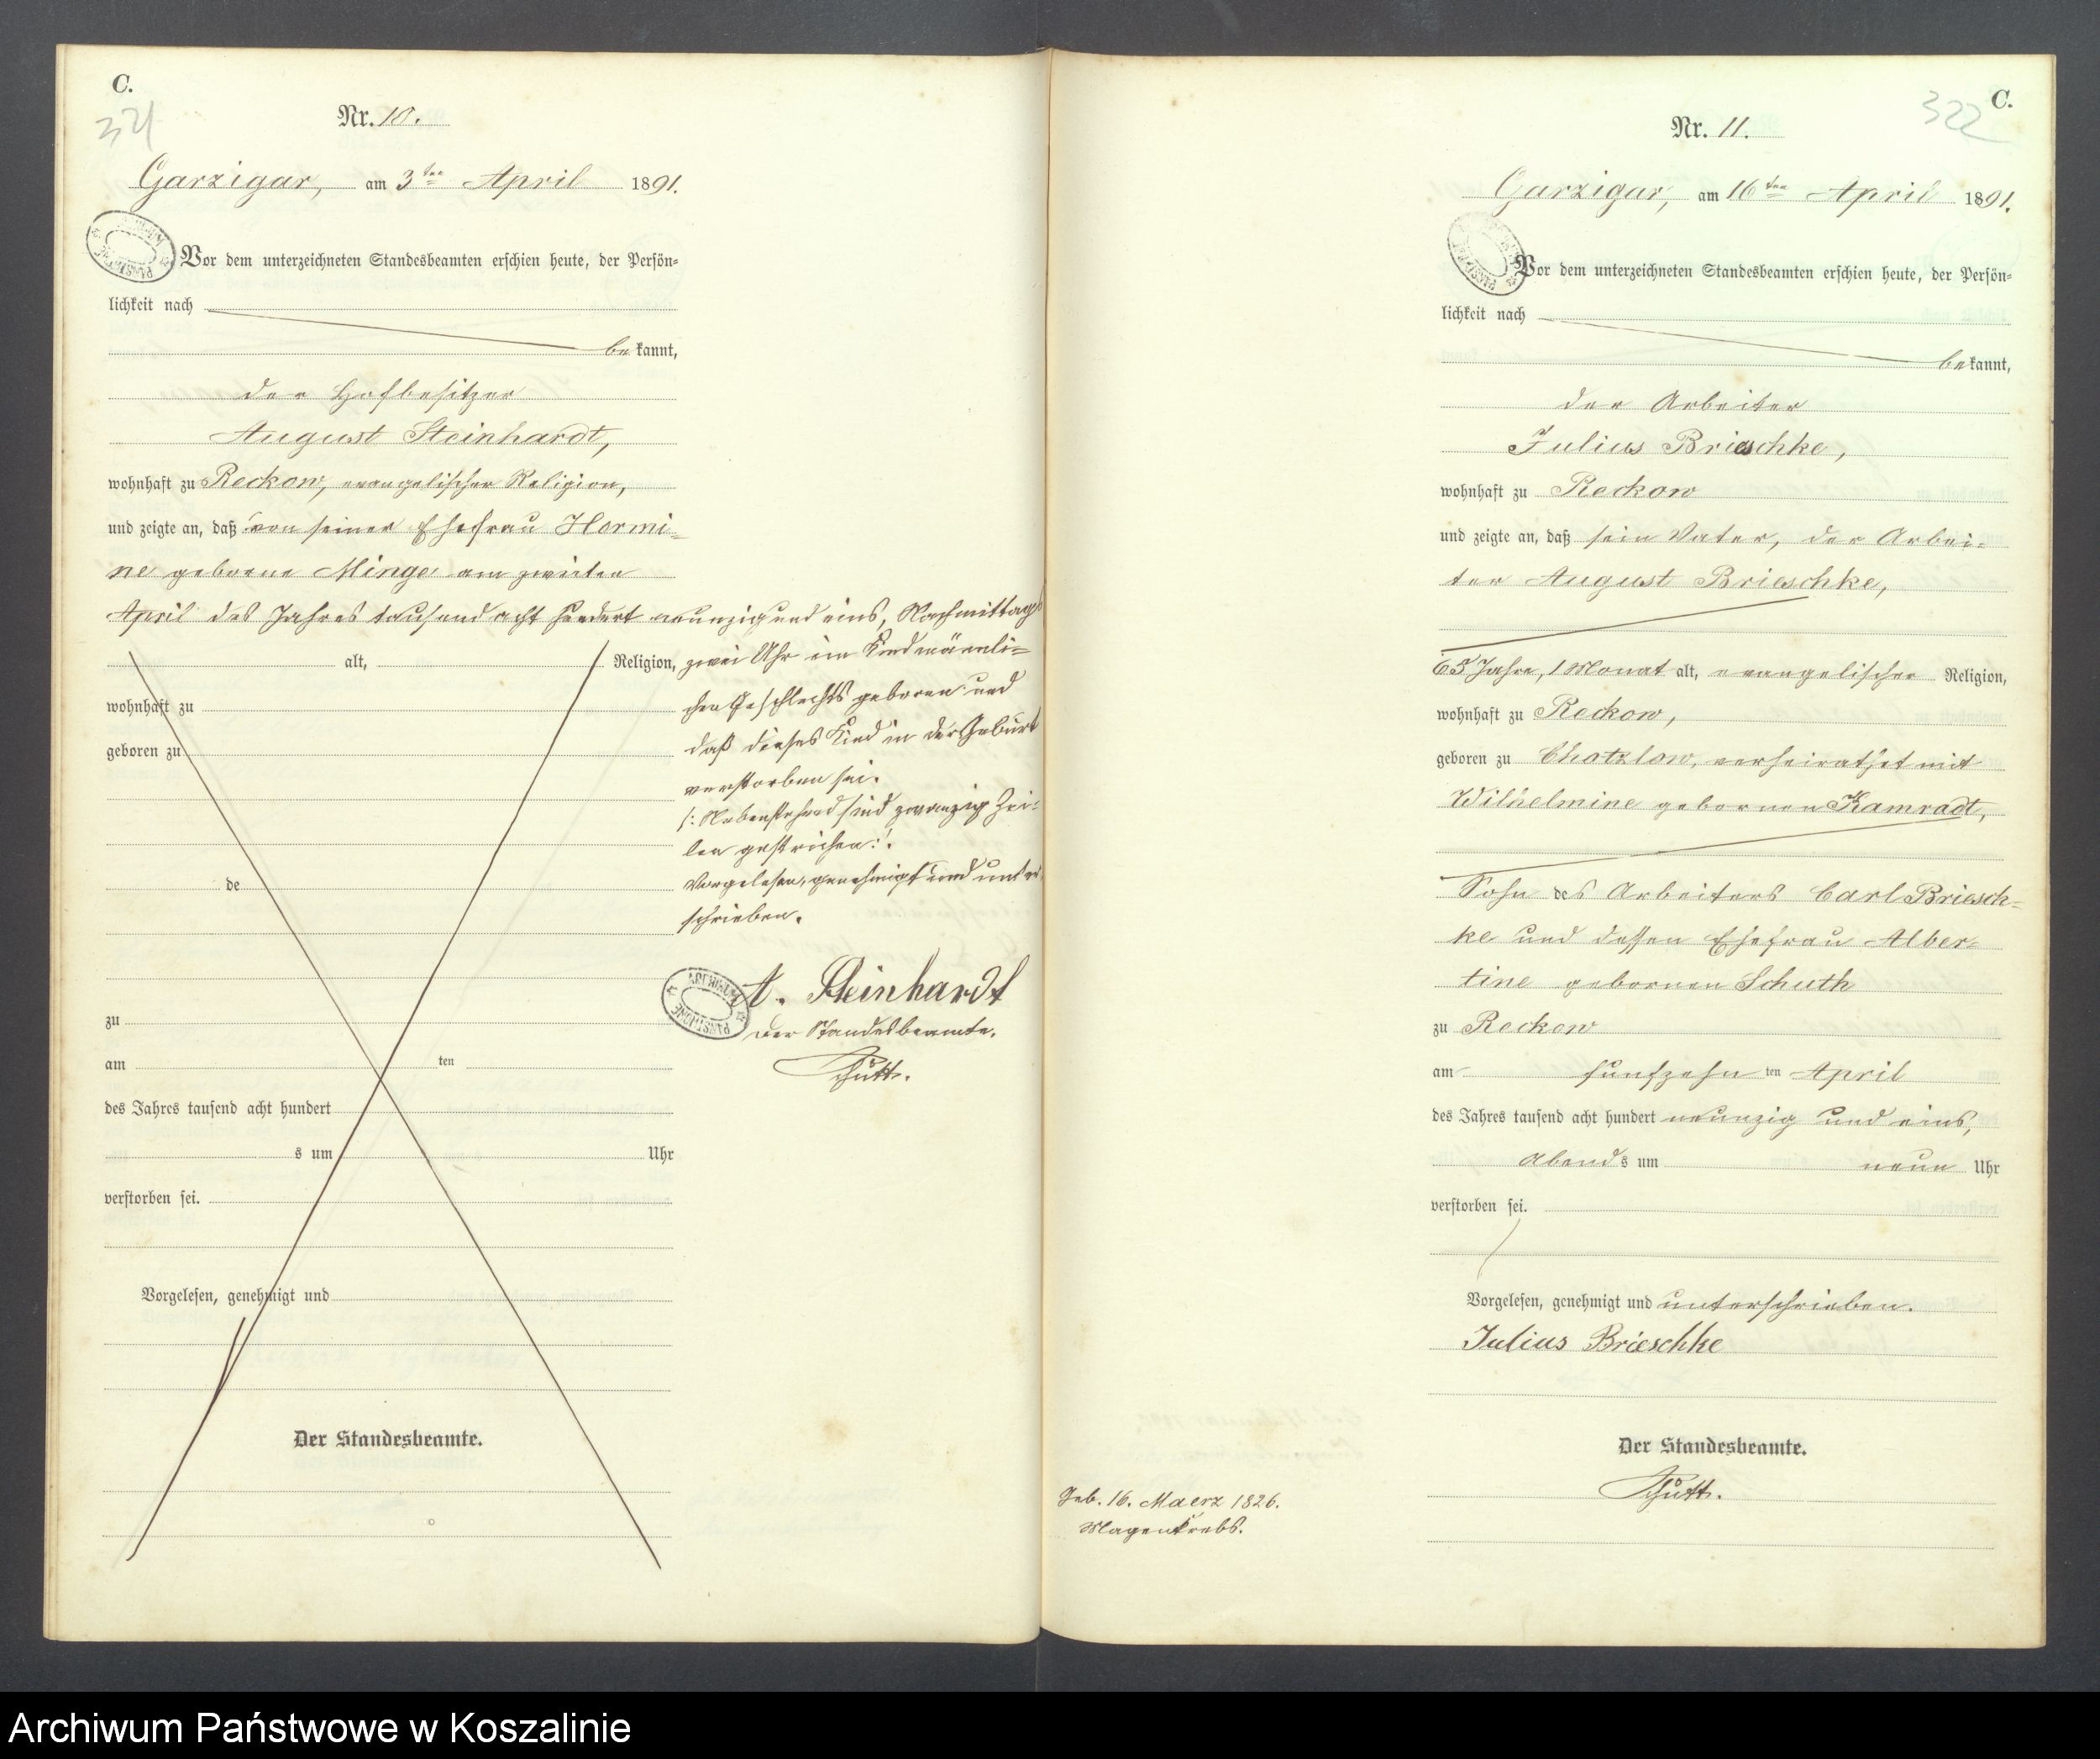 C.
321
Nr. 10.
Garzigar, am 3ten April 1891.
Vor dem unterzeichneten Standesbeamten erschien heute, der Persön=
lichkeit nach
bekannt,
der Hofbesitzer
August Steinhardt,
wohnhaft zu Reckow, evangelischer Religion,
und zeigte an, daß von seiner Ehefrau Hermi=
ne geborne Minge am zweiten
April des Jahres tausend acht hundert neunzig und eins, Nachmittags
alt, Religion, zwei Uhr ein Kind männli=
wohnhaft zu
chen Geschlechts geboren und
geboren zu
daß dieses Kind in der Geburt
verstorben sei.
/: Nebenstehend sind zwanzig Zei=
len gestrichen :/.
de
Vorgelesen, genehmigt und unter
schrieben.
A. Steinhardt
Der Standesbeamte.
Schütt.
zu
am ten
des Jahres tausend acht hundert
s um Uhr
verstorben sei.
Vorgelesen, genehmigt und
Der Standesbeamte.
ARCHIWUM PAŃSTWOWE
C.
322
Nr. 11.
Garzigar, am 16ten April 1891.
Vor dem unterzeichneten Standesbeamten erschien heute, der Persön=
lichkeit nach
bekannt,
der Arbeiter
Julius Brieschke,
wohnhaft zu Reckow
und zeigte an, daß sein Vater, der Arbei=
ter August Brieschke,
65 Jahre, 1 Monat alt, evangelischer Religion,
wohnhaft zu Reckow,
geboren zu Chotzlow, verheirathet mit
Wilhelmine gebornen Kamradt,
Sohn des Arbeiters Carl Briesch=
ke und dessen Ehefrau Alber=
tine gebornen Schuth
zu Reckow
am funfzehn ten April
des Jahres tausend acht hundert neunzig und eins,
Abends um neun Uhr
verstorben sei.
Vorgelesen, genehmigt und unterschrieben.
Julius Brieschke
Der Standesbeamte.
Schütt.
Geb. 16. Maerz 1826.
Magenkrebs.
Archiwum Państwowe w Koszalinie